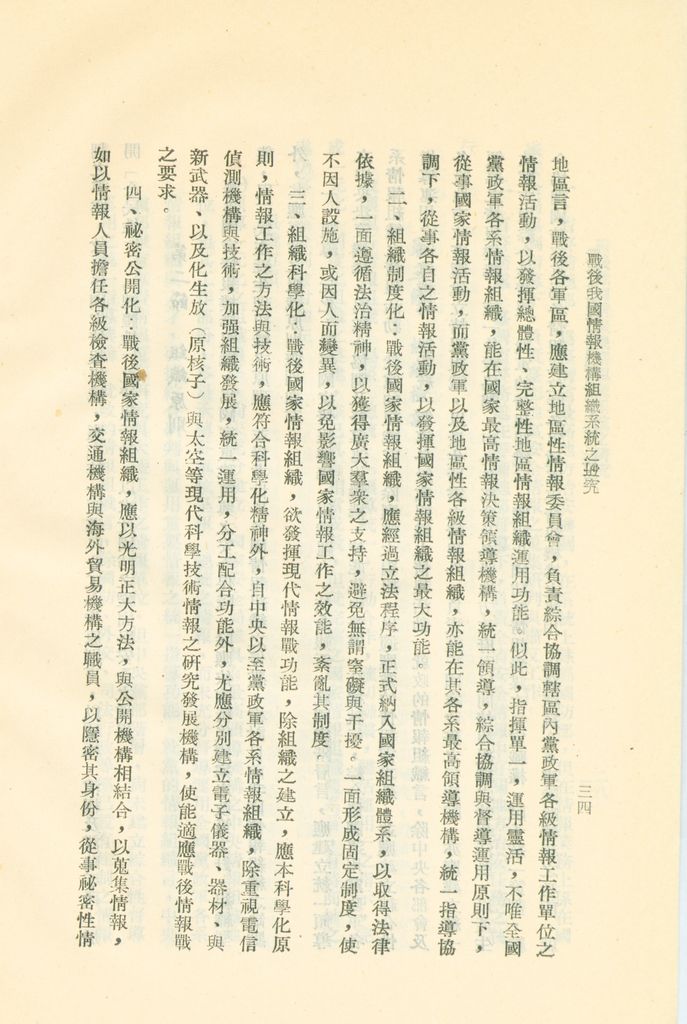 戰後我國情報機構組織系統之研究
三四
地區言，戰後各軍區，應建立地區性情報委員會，負責綜合協調轄區內黨政軍各級情報工作單位之
情報活動，以發揮總體性、完整性地區情報組織運用功能。似此，指揮單一，運用靈活，不唯全國
黨政軍各系情報組織，能在國家最高情報決策領導機構，統一領導，綜合協調與督導運用原則下，
從事國家情報活動，而黨政軍以及地區性各級情報組織，亦能在其各系最高領導機構，統一指導協
調下，從事各自之情報活動，以發揮國家情報組織之最大功能。
二、組織制度化：戰後國家情報組織，應經過立法程序，正式納入國家組織體系，以取得法律
依據，一面遵循法治精神，以獲得廣大羣衆之支持，避免無謂窒礙與干擾。一面形成固定制度，使
不因人設施，或因人而變異，以免影響國家情報工作之效能，紊亂其制度。
三、組織科學化：戰後國家情報組織，欲發揮現代情報戰功能，除組織之建立，應本科學化原
則，情報工作之方法與技術，應符合科學化精神外，自中央以至黨政軍各系情報組織，除重視電信
偵測機構與技術，加强組織發展，統一運用，分工配合功能外，尤應分別建立電子儀器、器材、與
新武器、以及化生放（原核子）與太空等現代科學技術情報之研究發展機構，使能適應戰後情報戰
之要求。
四、祕密公開化：戰後國家情報組織，應以光明正大方法，與公開機構相結合，以蒐集情報，
如以情報人員擔任各級檢查機構，交通機構與海外貿易機構之職員，以隱密其身份，從事祕密性情